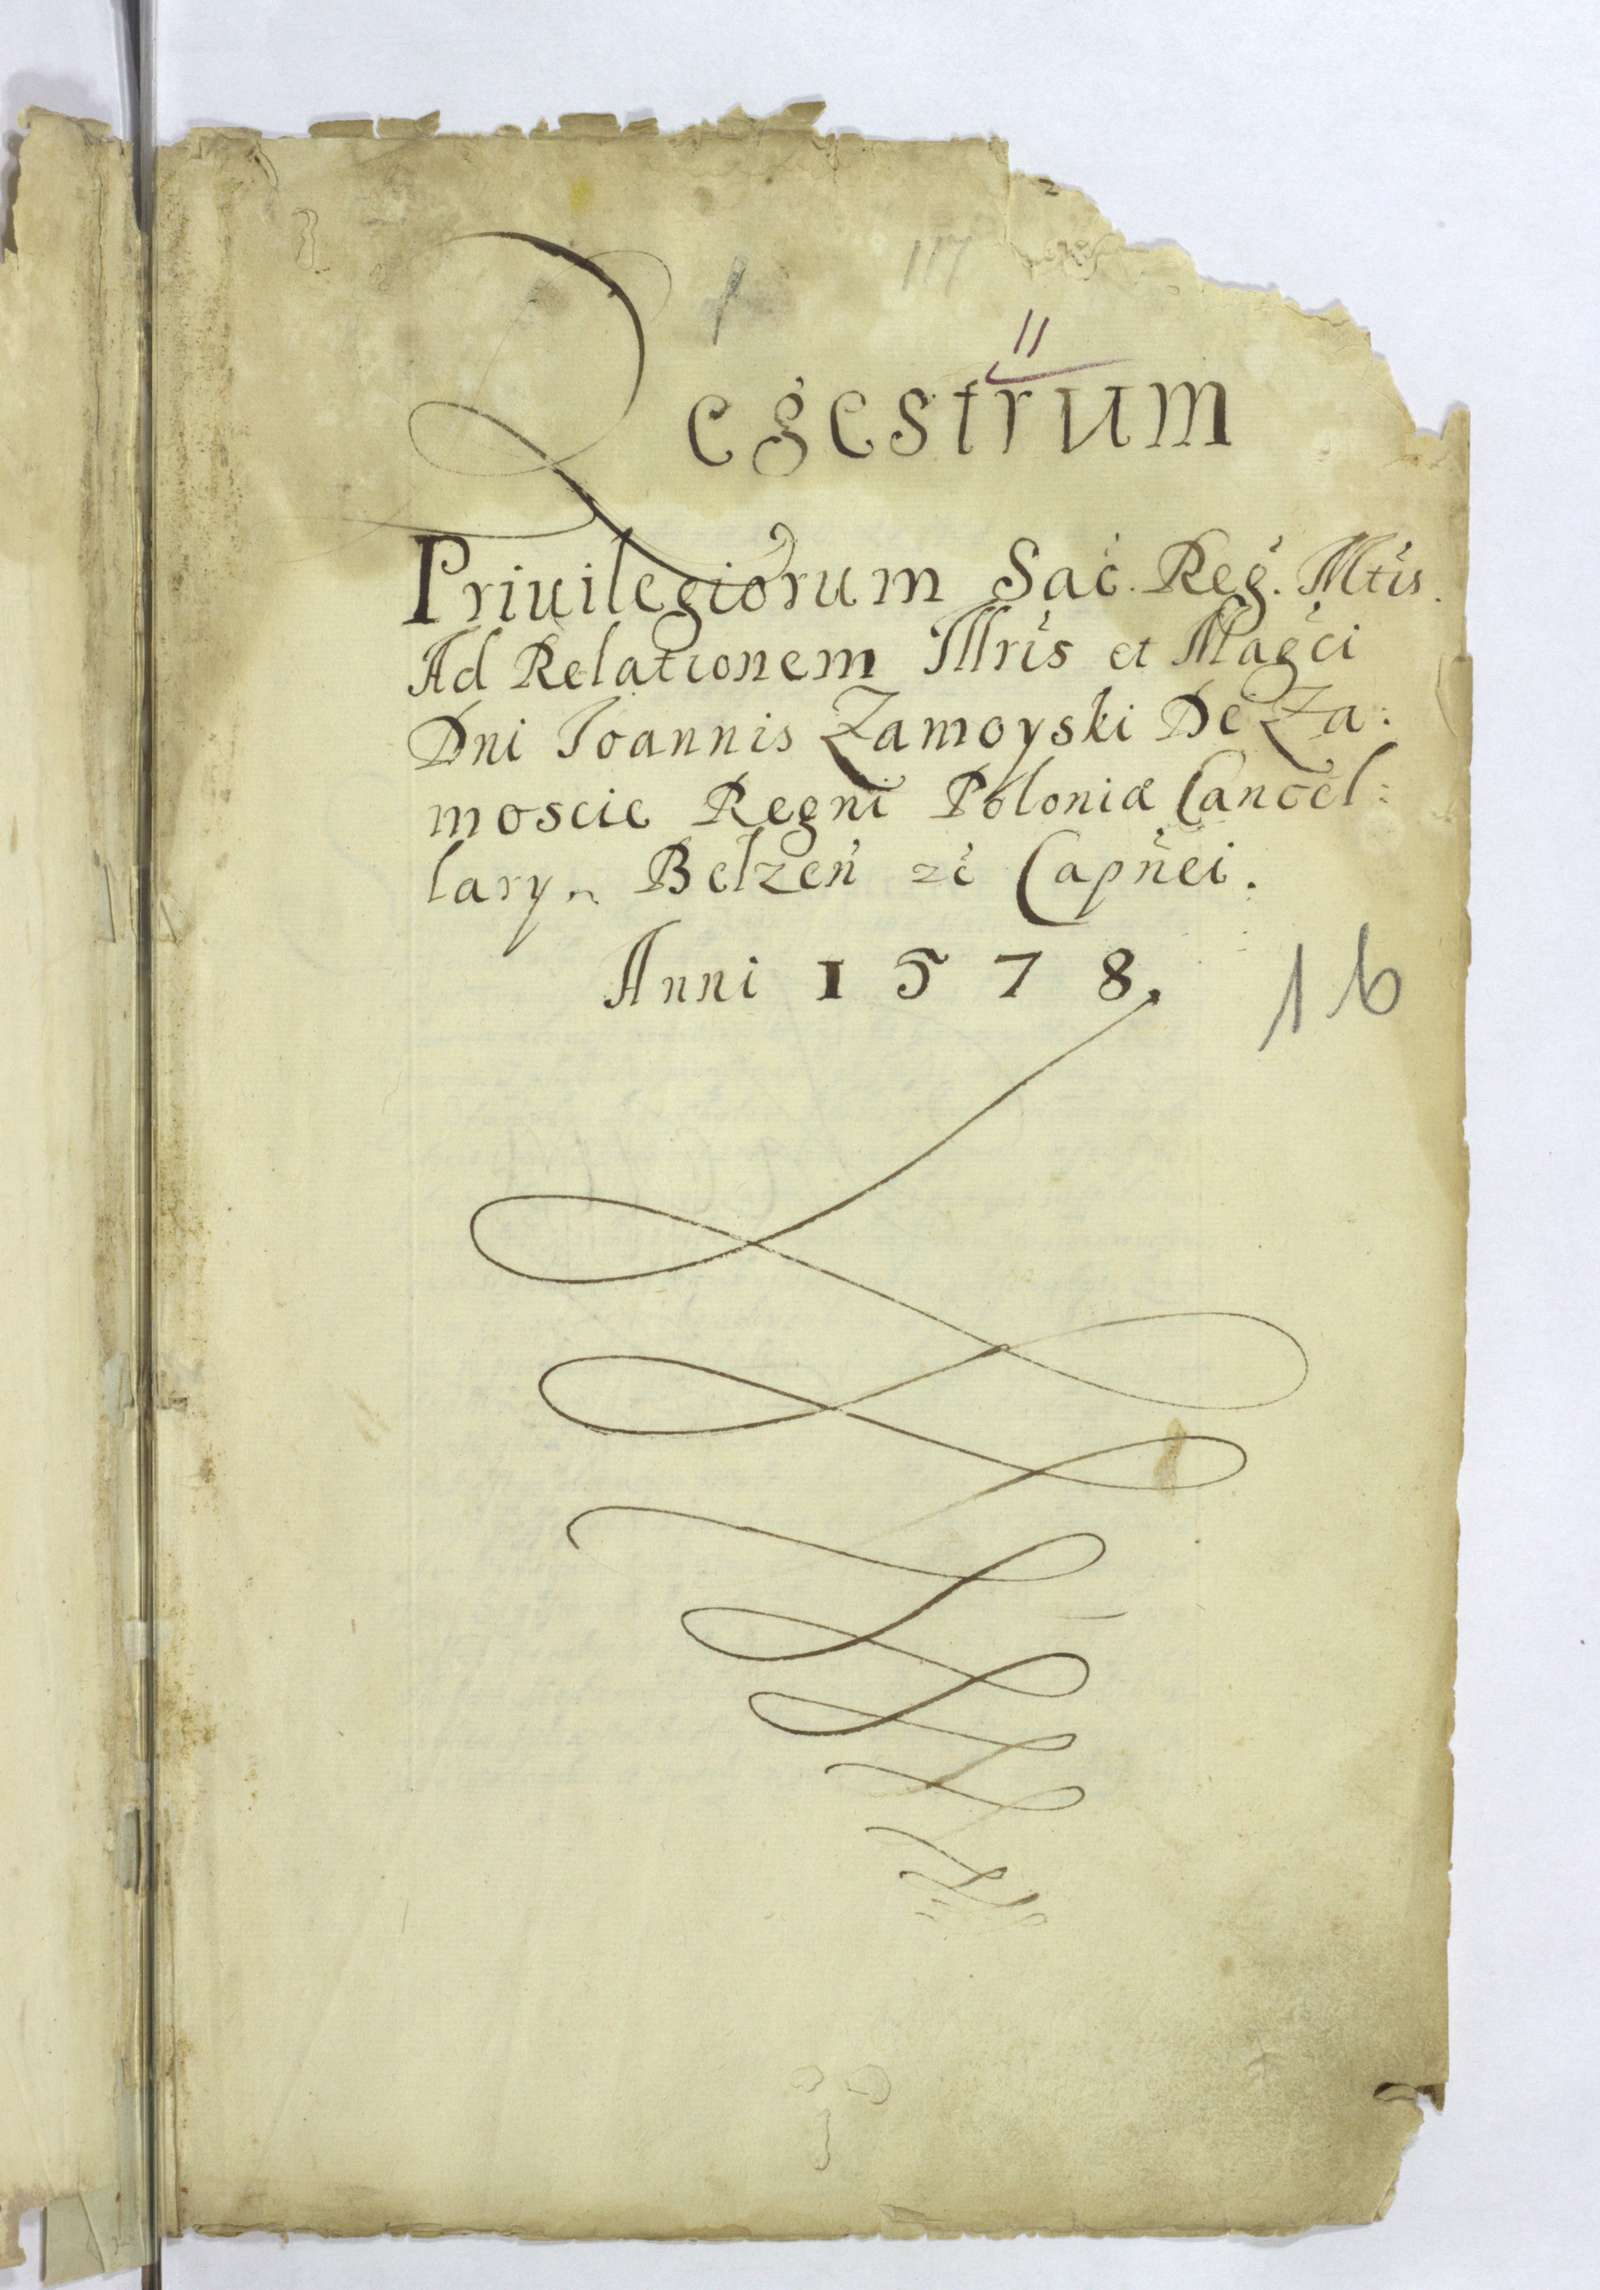 117
11
Regestrum
Priuilegiorum Sac. Reg. Mtis.
Ad Relationem Illris et Magci
Dni Joannis Zamoyski De Za:
moscie Regni Poloniæ Cancel:
lary. Belzen zc Capnei.
Anni 1578.
16